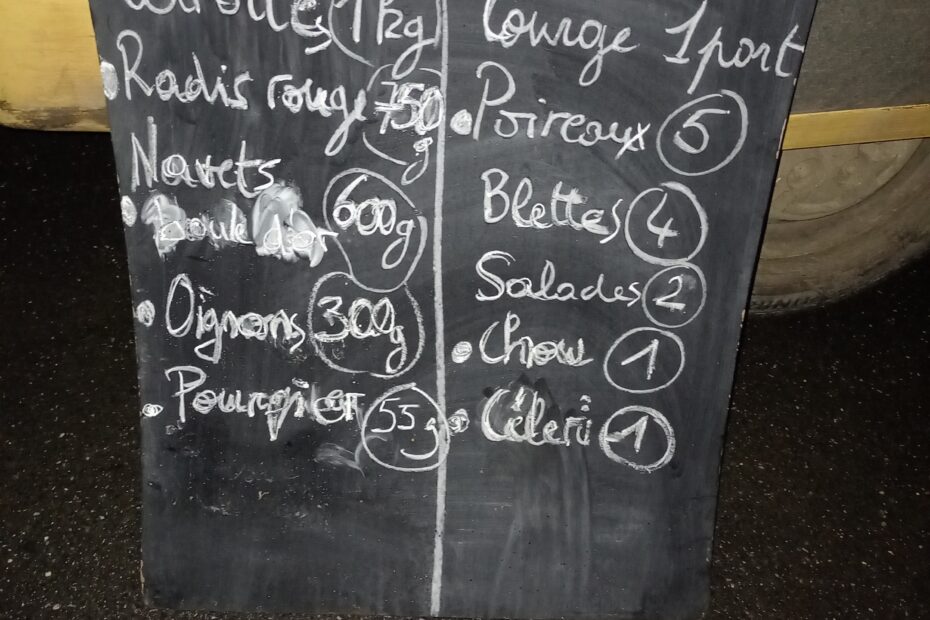 Carotte 1kg
Radis rouge 750
g
Navets
boule d'or 600g
Oignons 300g
Pourpier 55g
Courge 1 part
Poireaux 5
Blettes 4
Salades 2
Chou 1
Céleri 1